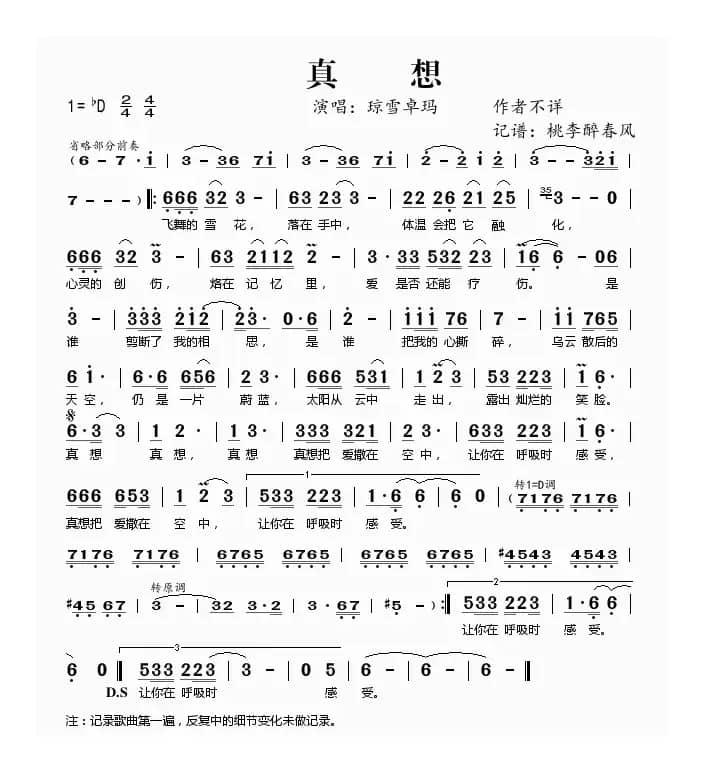 真 想
1=♭D 2/4 4/4 演唱：琼雪卓玛 作者不详
记谱：桃李醉春风
省略部分前奏
(6 - 7 · i | 3 - 36 7i | 3 - 36 7i | 2 - 2 i 2 | 3 - - 32i |
7 - - - ) ‖: 666 32 3 - | 63 23 3 - | 22 26 21 25 | 35 3 - - 0 |
飞舞的 雪 花， 落在 手中， 体温 会把 它 融 化，
666 32 3 - | 63 2112 2 - | 3 · 33 532 23 | 16 6 - 06 |
心灵的 创 伤， 烙在 记 忆 里， 爱 是否 还能 疗 伤。 是
3 - | 333 212 | 23 · 0 · 6 | 2 - | iii 76 | 7 - | ii 765 |
谁 剪断了 我的相 思， 是 谁 把我的 心撕 碎， 乌云 散后的
6 i · | 6 · 6 656 | 2 3 · | 666 531 | 1 2 3 | 53 223 | 1 6 · |
天 空， 仍 是 一片 蔚 蓝， 太阳从 云中 走 出， 露出 灿烂的 笑 脸。
6 · 3 3 | 1 2 · | 1 3 · | 333 321 | 2 3 · | 633 223 | 1 6 · |
真 想 真 想， 真 想 真想把 爱撒在 空 中， 让你在 呼吸时 感 受，
666 653 | 1 2 3 | 1 533 223 | 1 · 6 6 | 6 0 | 转1=D调 (7176 7176 |
真想把 爱撒在 空 中， 让你在 呼吸时 感 受。
7176 7176 | 6765 6765 | 6765 6765 | #4543 4543 |
转原调
#45 67 | 3 - | 32 3·2 | 3 · 67 | #5 - ) :‖ 2 533 223 | 1 · 6 6 |
让你在 呼吸时 感 受。
6 0 ‖ 3 533 223 | 3 - | 3 - | 05 5 | 6 - | 6 - | 6 - ‖
D.S 让你在 呼吸时 感 受。
注：记录歌曲第一遍，反复中的细节变化未做记录。